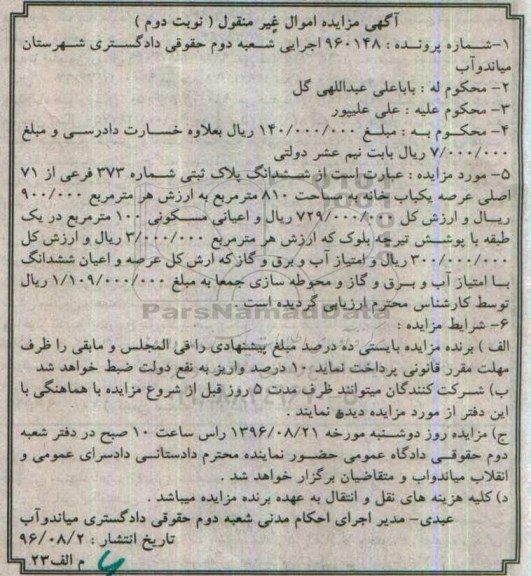 آگهی مزایده اموال غیر منقول ( نوبت دوم )
۱-شـماره پرونـده : ۹۶۰۱۴۸ اجرایی شـعبه دوم حقوقی دادگسـتری شـهرستان
میاندوآب
۲- محکوم له : باباعلی عبداللهی گل
۳- محکوم علیه : علی علیپور
۴- محکـوم بـه : مبلـغ ۱۴۰/۰۰۰/۰۰۰ ریال بعلاوه خسـارت دادرسـی و مبلغ
۷/۰۰۰/۰۰۰ ریال بابت نیم عشر دولتی
۵- مورد مزایده : عبارت است از ششدانگ پلاک ثبتی شماره ۳۷۳ فرعی از ۷۱
اصلی عرصه یکباب خانه به مساحت ۸۱۰ مترمربع به ارزش هر مترمربع ۹۰۰/۰۰۰
ریـال و ارزش کل ۷۲۹/۰۰۰/۰۰۰ ریال و اعیانی مسـکونی ۱۰۰ مترمربع در یک
طبقه با پوشـش تیرچه بلوک که ارزش هر مترمربع ۳/۰۰۰/۰۰۰ ریال و ارزش کل
۳۰۰/۰۰۰/۰۰۰ ریال و امتیاز آب و برق و گازکه ارش کل عرصه و اعیان ششدانگ
بـا امتیاز آب و بـرق و گاز و محوطه سازی جمعا به مبلغ ۱/۱۰۹/۰۰۰/۰۰۰ ریال
توسط کارشناس محترم ارزیابی گردیده است
ParsNamadData
۶- شرایط مزایده :
الف ) برنده مزایده بایستی ده درصد مبلغ پیشنهادی را فی المجلس و مابقی را ظرف
مهلت مقرر قانونی پرداخت نماید ۱۰ درصد واریز به نفع دولت ضبط خواهد شد
ب) شـرکت کنندگان میتوانند ظرف مدت ۵ روز قبل از شروع مزایده با هماهنگی با
این دفتر از مورد مزایده دیدن نمایند .
ج) مزایده روز دوشـنبه مورخه ۱۳۹۶/۰۸/۲۱ راس ساعت ۱۰ صبح در دفتر شعبه
دوم حقوقـی دادگاه عمومی حضـور نماینده محترم دادستانـی دادسرای عمومی و
انقلاب میاندوآب و متقاضیان برگزار خواهد شد .
د) کلیه هزینه های نقل و انتقال به عهده برنده مزایده میباشد .
عبدی- مدیر اجرای احکام مدنی شعبه دوم حقوقی دادگستری میاندوآب
تاریخ انتشار : ۹۶/۰۸/۲
م الف۲۳